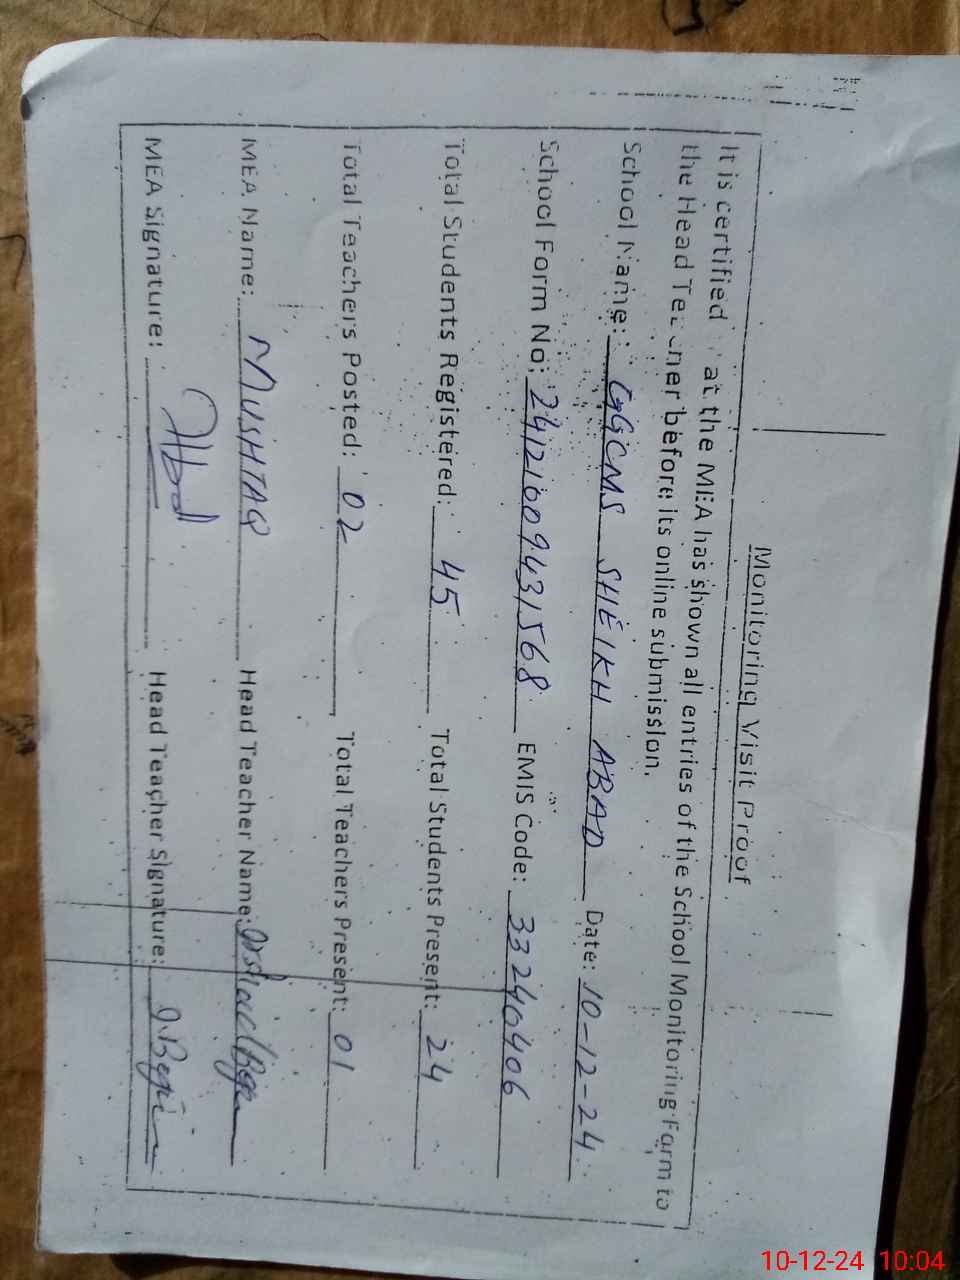 Monitoring Visit Proof
It is certified at the MEA has shown all entries of the School Monitoring Form to
the Head Teacher before its online submission.
School Name: GGCMS SHEIKH ABAD Date: 10-12-24
School Form No: 24121009431568 EMIS Code: 33240406
Total Students Registered: 45 Total Students Present: 24
Total Teachers Posted: 02 Total Teachers Present: 01
MEA Name: MUSHTAQ Head Teacher Name:
MEA Signature: Head Teacher Signature:
10-12-24 10:04